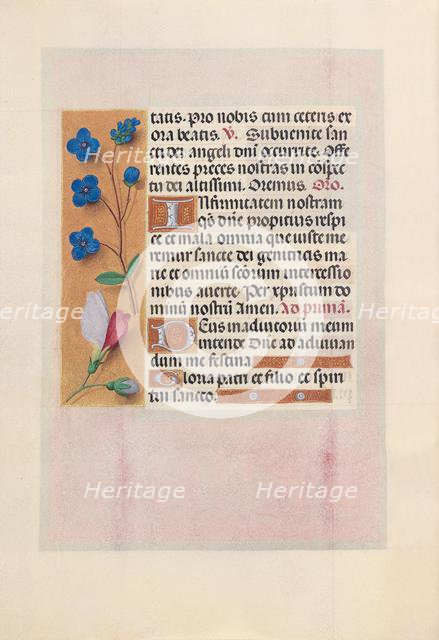 tatis. Pro nobis cum ceteris ex
ora beatis. V. Subvenite san
cti dei angeli dni occurrite. Offe
rentes preces nostras in cospec
tu dei altissimi. Oremus. Oro.
Infirmitatem nostram
qs dne propitius respi
ce et mala omnia que iuste me
remur sancte dei genitricis ma
rie et omniu scorum intercessio
nibus averte. Per xpustum do
minu nostru Amen. Ad prima.
Deus in adiutorium meum
intende Dne ad adiuvan
dum me festina
Gloria patri et filio et spiri
tui sancto.
Heritage
Heritage
Heritage
Heritage
Heritage
Heritage
Heritage